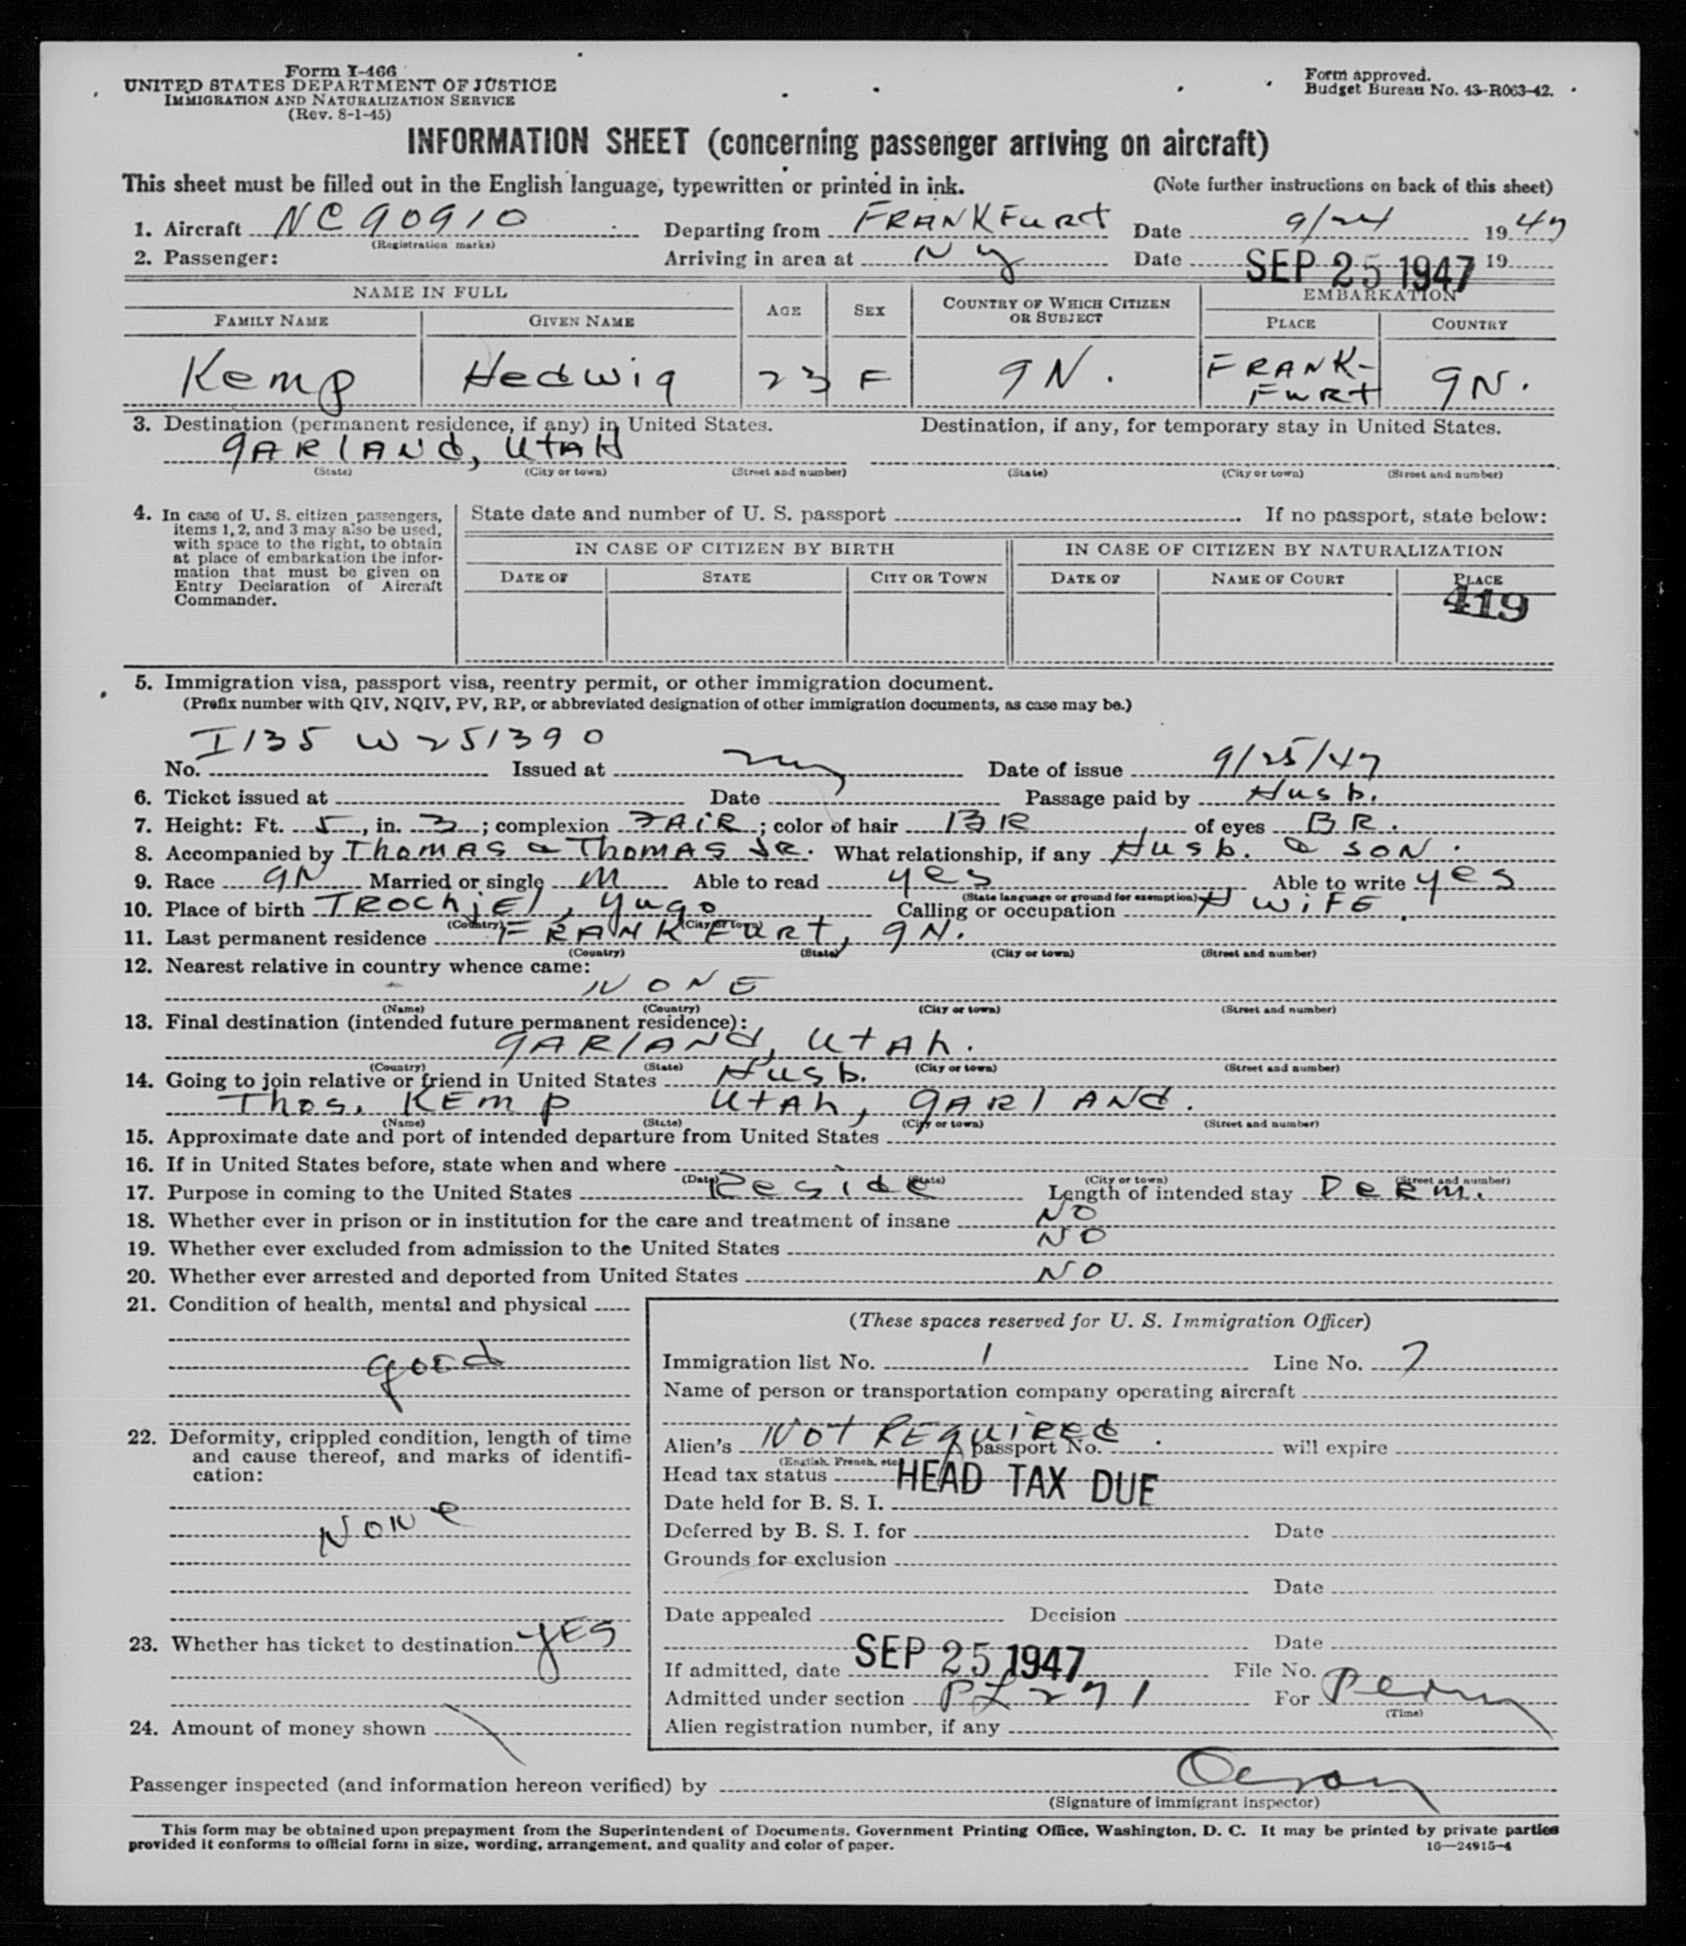 Form I-466
UNITED STATES DEPARTMENT OF JUSTICE
IMMIGRATION AND NATURALIZATION SERVICE
(Rev. 8-1-45)
Form approved.
Budget Bureau No. 43-R063-42.
INFORMATION SHEET (concerning passenger arriving on aircraft)
This sheet must be filled out in the English language, typewritten or printed in ink. (Note further instructions on back of this sheet)
1. Aircraft NC90910 Departing from FRANKFurt Date 9/24 1947
(Registration marks)
2. Passenger: Arriving in area at Ny Date SEP 25 1947 19
NAME IN FULL AGE SEX COUNTRY OF WHICH CITIZEN OR SUBJECT EMBARKATION
FAMILY NAME GIVEN NAME PLACE COUNTRY
Kemp Hedwig 23 F GN. FRANK-FurT GN.
3. Destination (permanent residence, if any) in United States. Destination, if any, for temporary stay in United States.
GARLAND, UTAH
(State) (City or town) (Street and number) (State) (City or town) (Street and number)
4. In case of U. S. citizen passengers, items 1, 2, and 3 may also be used, with space to the right, to obtain at place of embarkation the information that must be given on Entry Declaration of Aircraft Commander.
State date and number of U. S. passport If no passport, state below:
IN CASE OF CITIZEN BY BIRTH IN CASE OF CITIZEN BY NATURALIZATION
DATE OF STATE CITY OR TOWN DATE OF NAME OF COURT PLACE
419
5. Immigration visa, passport visa, reentry permit, or other immigration document.
(Prefix number with QIV, NQIV, PV, RP, or abbreviated designation of other immigration documents, as case may be.)
I135 W251390
No. Issued at Ny Date of issue 9/25/47
6. Ticket issued at Date Passage paid by Husb.
7. Height: Ft. 5, in. 3; complexion FAIR; color of hair BR of eyes BR.
8. Accompanied by Thomas & Thomas JR. What relationship, if any Husb. & son.
9. Race GN Married or single M Able to read yes Able to write yes
(State language or ground for exemption)
10. Place of birth TROchjEl, Yugo Calling or occupation H WiFE.
(Country) (City or town)
11. Last permanent residence FRANKFurt, GN.
(Country) (State) (City or town) (Street and number)
12. Nearest relative in country whence came:
NONE
(Name) (Country) (City or town) (Street and number)
13. Final destination (intended future permanent residence):
GARLAND, UtAh.
(Country) (State) (City or town) (Street and number)
14. Going to join relative or friend in United States Husb.
Thos. KEMP UtAh, GARLAND.
(Name) (State) (City or town) (Street and number)
15. Approximate date and port of intended departure from United States
16. If in United States before, state when and where
(Date) (State) (City or town) (Street and number)
17. Purpose in coming to the United States Reside Length of intended stay PERM.
18. Whether ever in prison or in institution for the care and treatment of insane NO
19. Whether ever excluded from admission to the United States NO
20. Whether ever arrested and deported from United States NO
21. Condition of health, mental and physical
good
22. Deformity, crippled condition, length of time and cause thereof, and marks of identification:
None
23. Whether has ticket to destination YES
24. Amount of money shown
(These spaces reserved for U. S. Immigration Officer)
Immigration list No. 1 Line No. 7
Name of person or transportation company operating aircraft
Alien's NOT REQUIRED passport No. will expire
(English, French, etc.)
Head tax status HEAD TAX DUE
Date held for B. S. I.
Deferred by B. S. I. for Date
Grounds for exclusion
Date
Date appealed Decision
Date
If admitted, date SEP 25 1947 File No.
Admitted under section PL 271 For Perm
(Time)
Alien registration number, if any
Passenger inspected (and information hereon verified) by
(Signature of immigrant inspector)
This form may be obtained upon prepayment from the Superintendent of Documents, Government Printing Office, Washington, D. C. It may be printed by private parties
provided it conforms to official form in size, wording, arrangement, and quality and color of paper. 16—24915-4